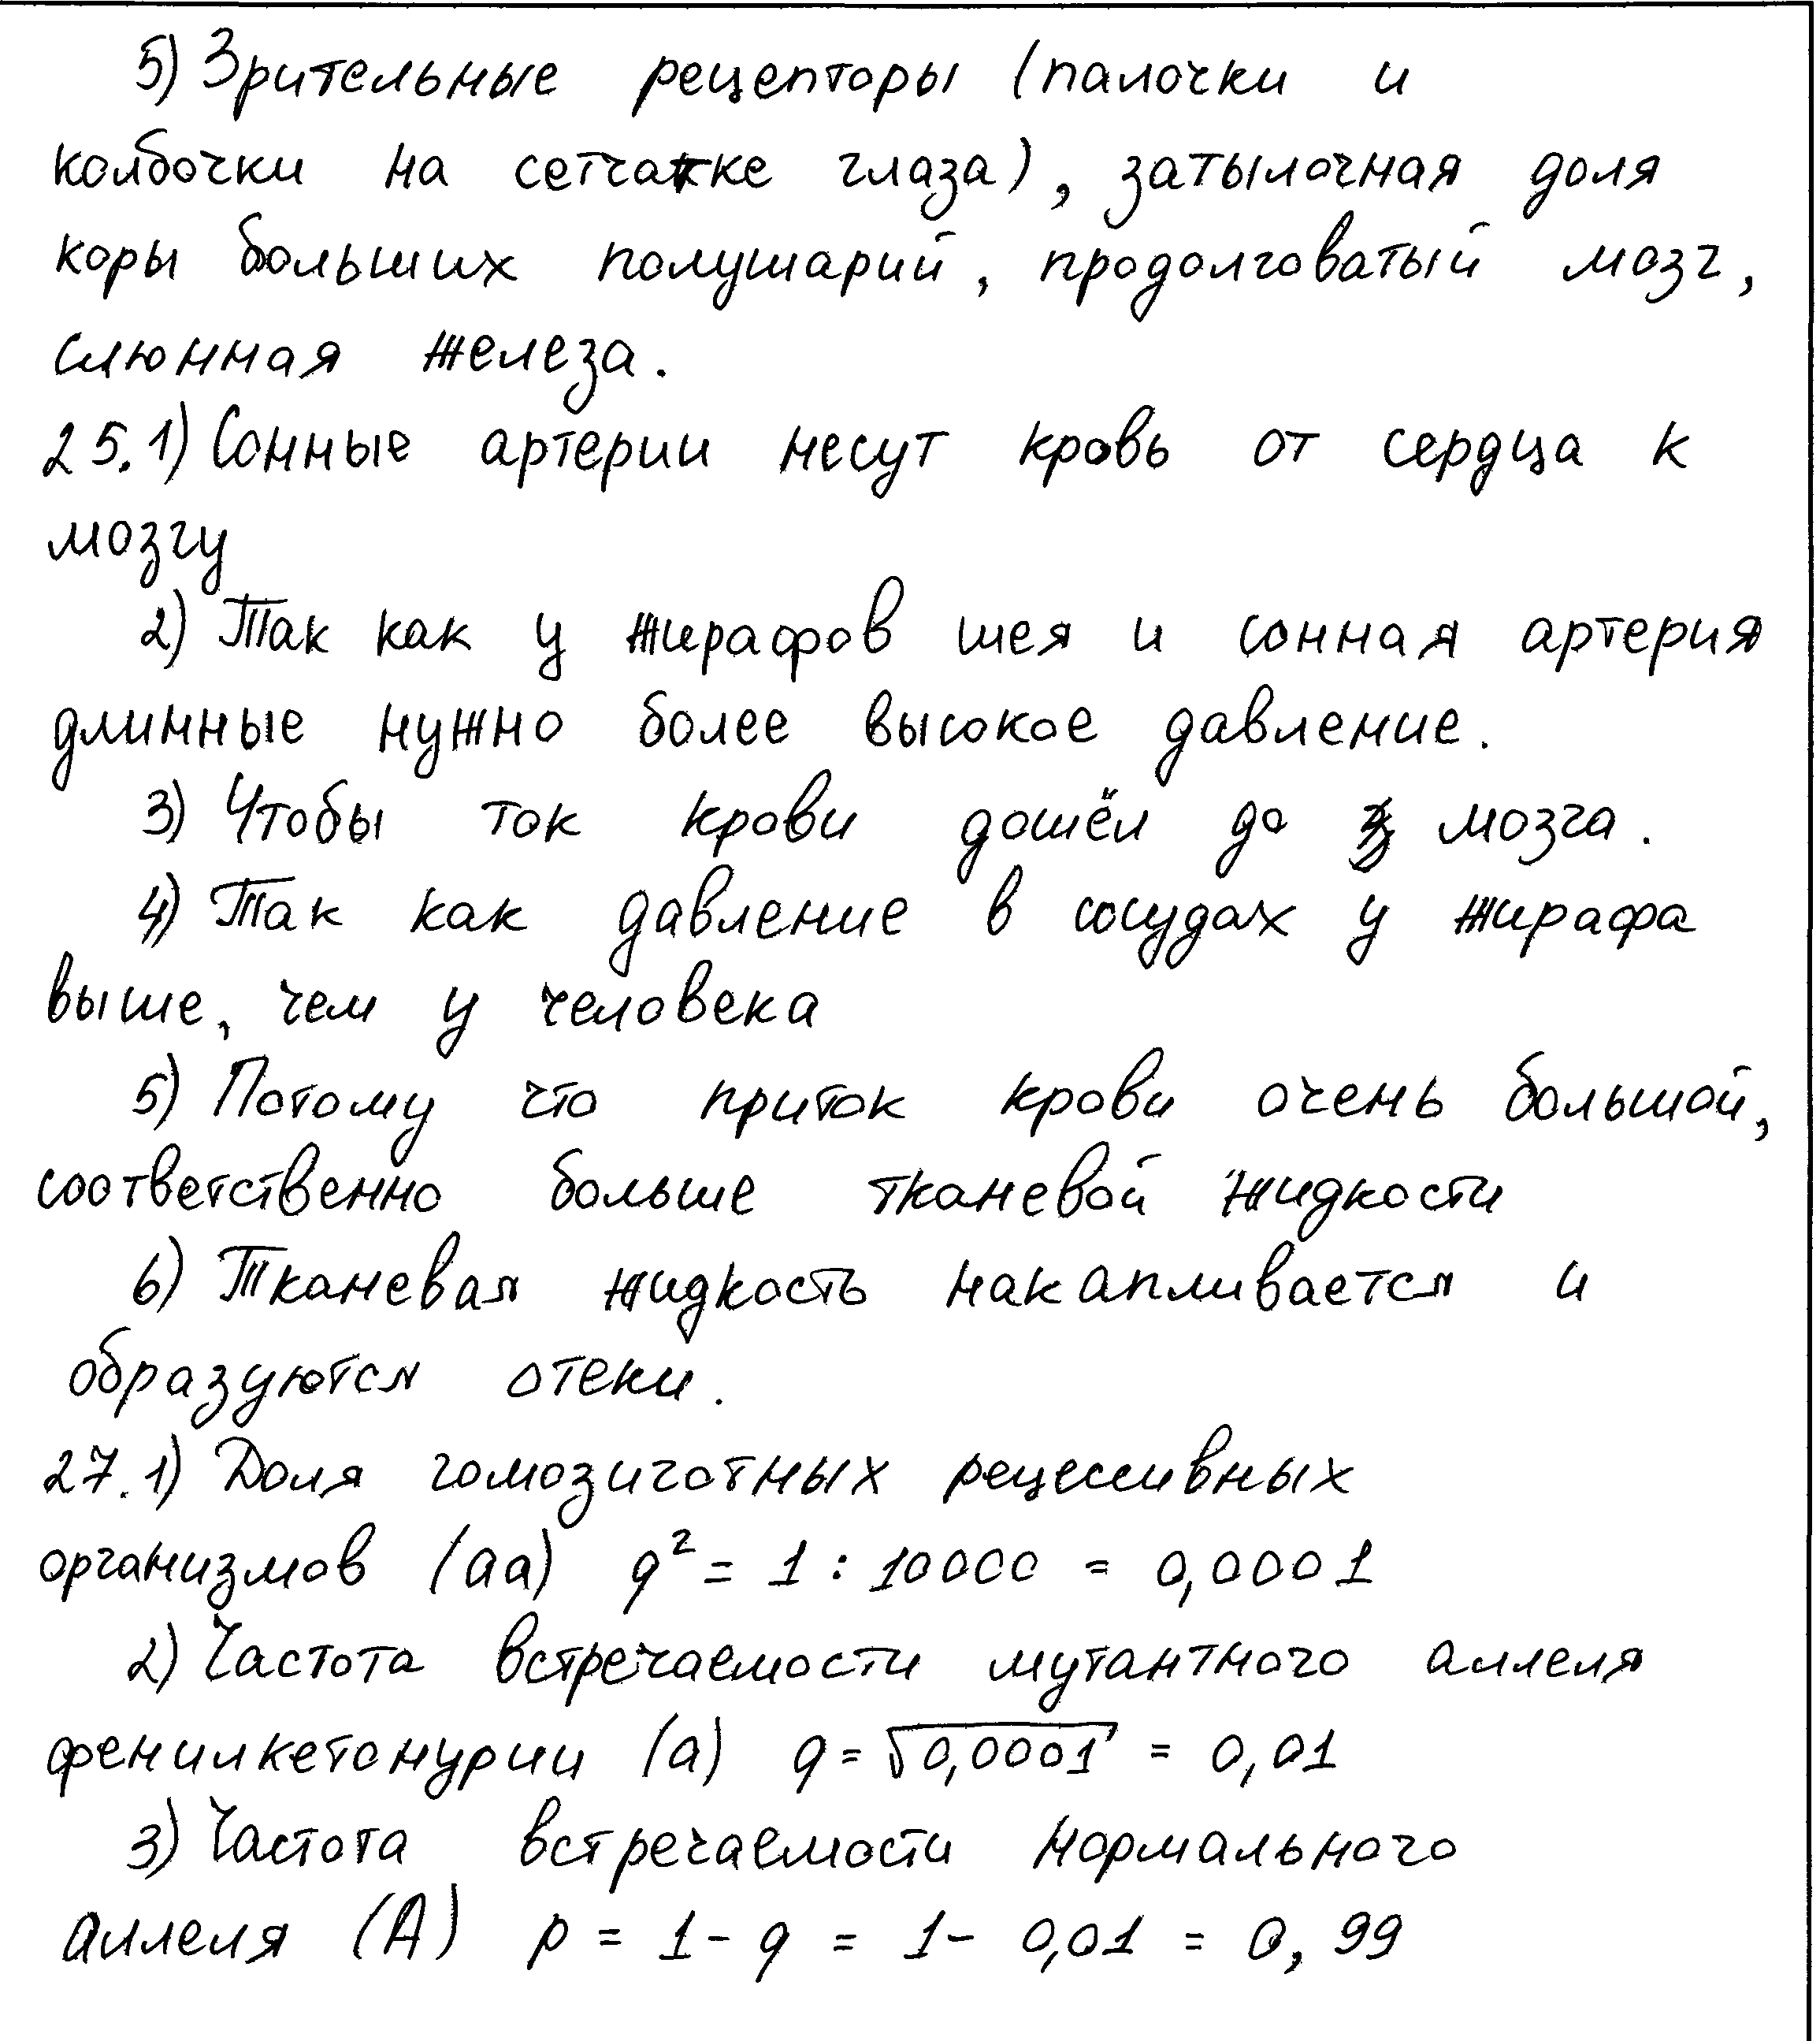 5) Зрительные рецепторы (палочки и
колбочки на сетчатке глаза), затылочная доля
коры больших полушарий, продолговатый мозг,
слюнная железа.
25.1) Сонные артерии несут кровь от сердца к
мозгу
2) Так как у жирафов шея и сонная артерия
длинные нужно более высокое давление.
3) Чтобы ток крови дошёл до мозга.
4) Так как давление в сосудах у жирафа
выше, чем у человека
5) Потому что приток крови очень большой,
соответственно больше тканевой жидкости
6) Тканевая жидкость накапливается и
образуются отеки.
27.1) Доля гомозиготных рецессивных
организмов (aa) q² = 1 : 10000 = 0,0001
2) Частота встречаемости мутантного аллеля
фенилкетонурии (a) q = √0,0001 = 0,01
3) Частота встречаемости нормального
аллеля (A) p = 1 - q = 1 - 0,01 = 0,99